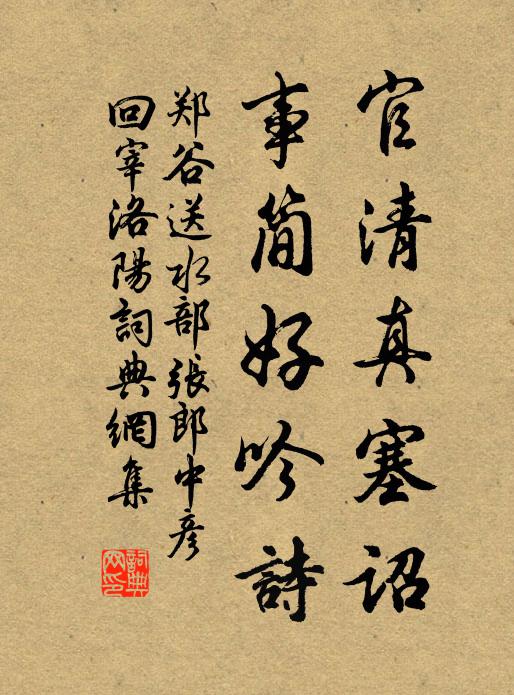 官清真塞詔
事简好吟詩
郑谷送水部張郎中彦
回宰洛陽詞典網集
詞典
网印